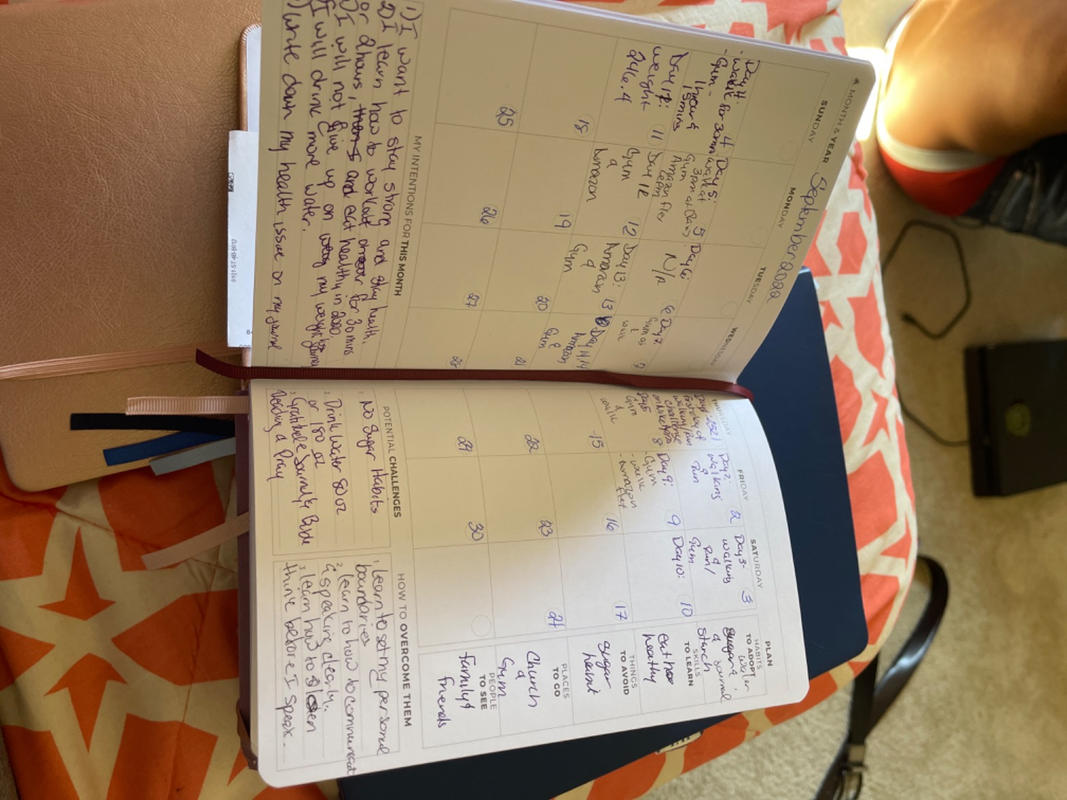 MONTH & YEAR September 2022
SUNDAY
MONDAY
TUESDAY
WEDNESDAY
4
Day 4:
- walk for 30min
- Gym -
1 hour &
15mins
5
Day 5:
walk at
3pm at
Gym
Amazon flex
6
Day 6:
N/A
Day 7
Gym
11
Day 11:
weight
246.4
12
Day 12
Gym
&
Amazon
13
Day 13:
Amazon
&
Gym
Day 14
Amazon
&
Gym
18
19
20
21
25
26
27
28
MY INTENTIONS FOR THIS MONTH
1) I want to stay strong and stay health.
2) I learn how to workout for 30 mins
or 2 hours, and eat healthy in 2022
I will not give up on my weight
I will drink more water.
write down my health issue on my
FRIDAY
SATURDAY
2
Day 2:
walking
&
run
3
Day 3-
walking
&
run/
Gym
8
Gym
&
walk
9
Day 9:
Gym
- walk
- Amazon
flex
10
Day 10:
15
16
17
22
23
24
29
30
PLAN
HABITS
TO ADOPT
water
& journal
SKILLS
TO LEARN
starch
eat
healthy
THINGS
TO AVOID
sugar
habit
PLACES
TO GO
Church
&
Gym
PEOPLE
TO SEE
family &
friends
POTENTIAL CHALLENGES
1. No Sugar Habits
2. Drink water 80 oz
or 180 oz
3. Gratitude Journal & Bible
Reading & Pray
HOW TO OVERCOME THEM
1. Learn to set my personal
boundaries
2. learn to how to communicat
& speaking clearly.
3. learn how to listen
think before I speak.